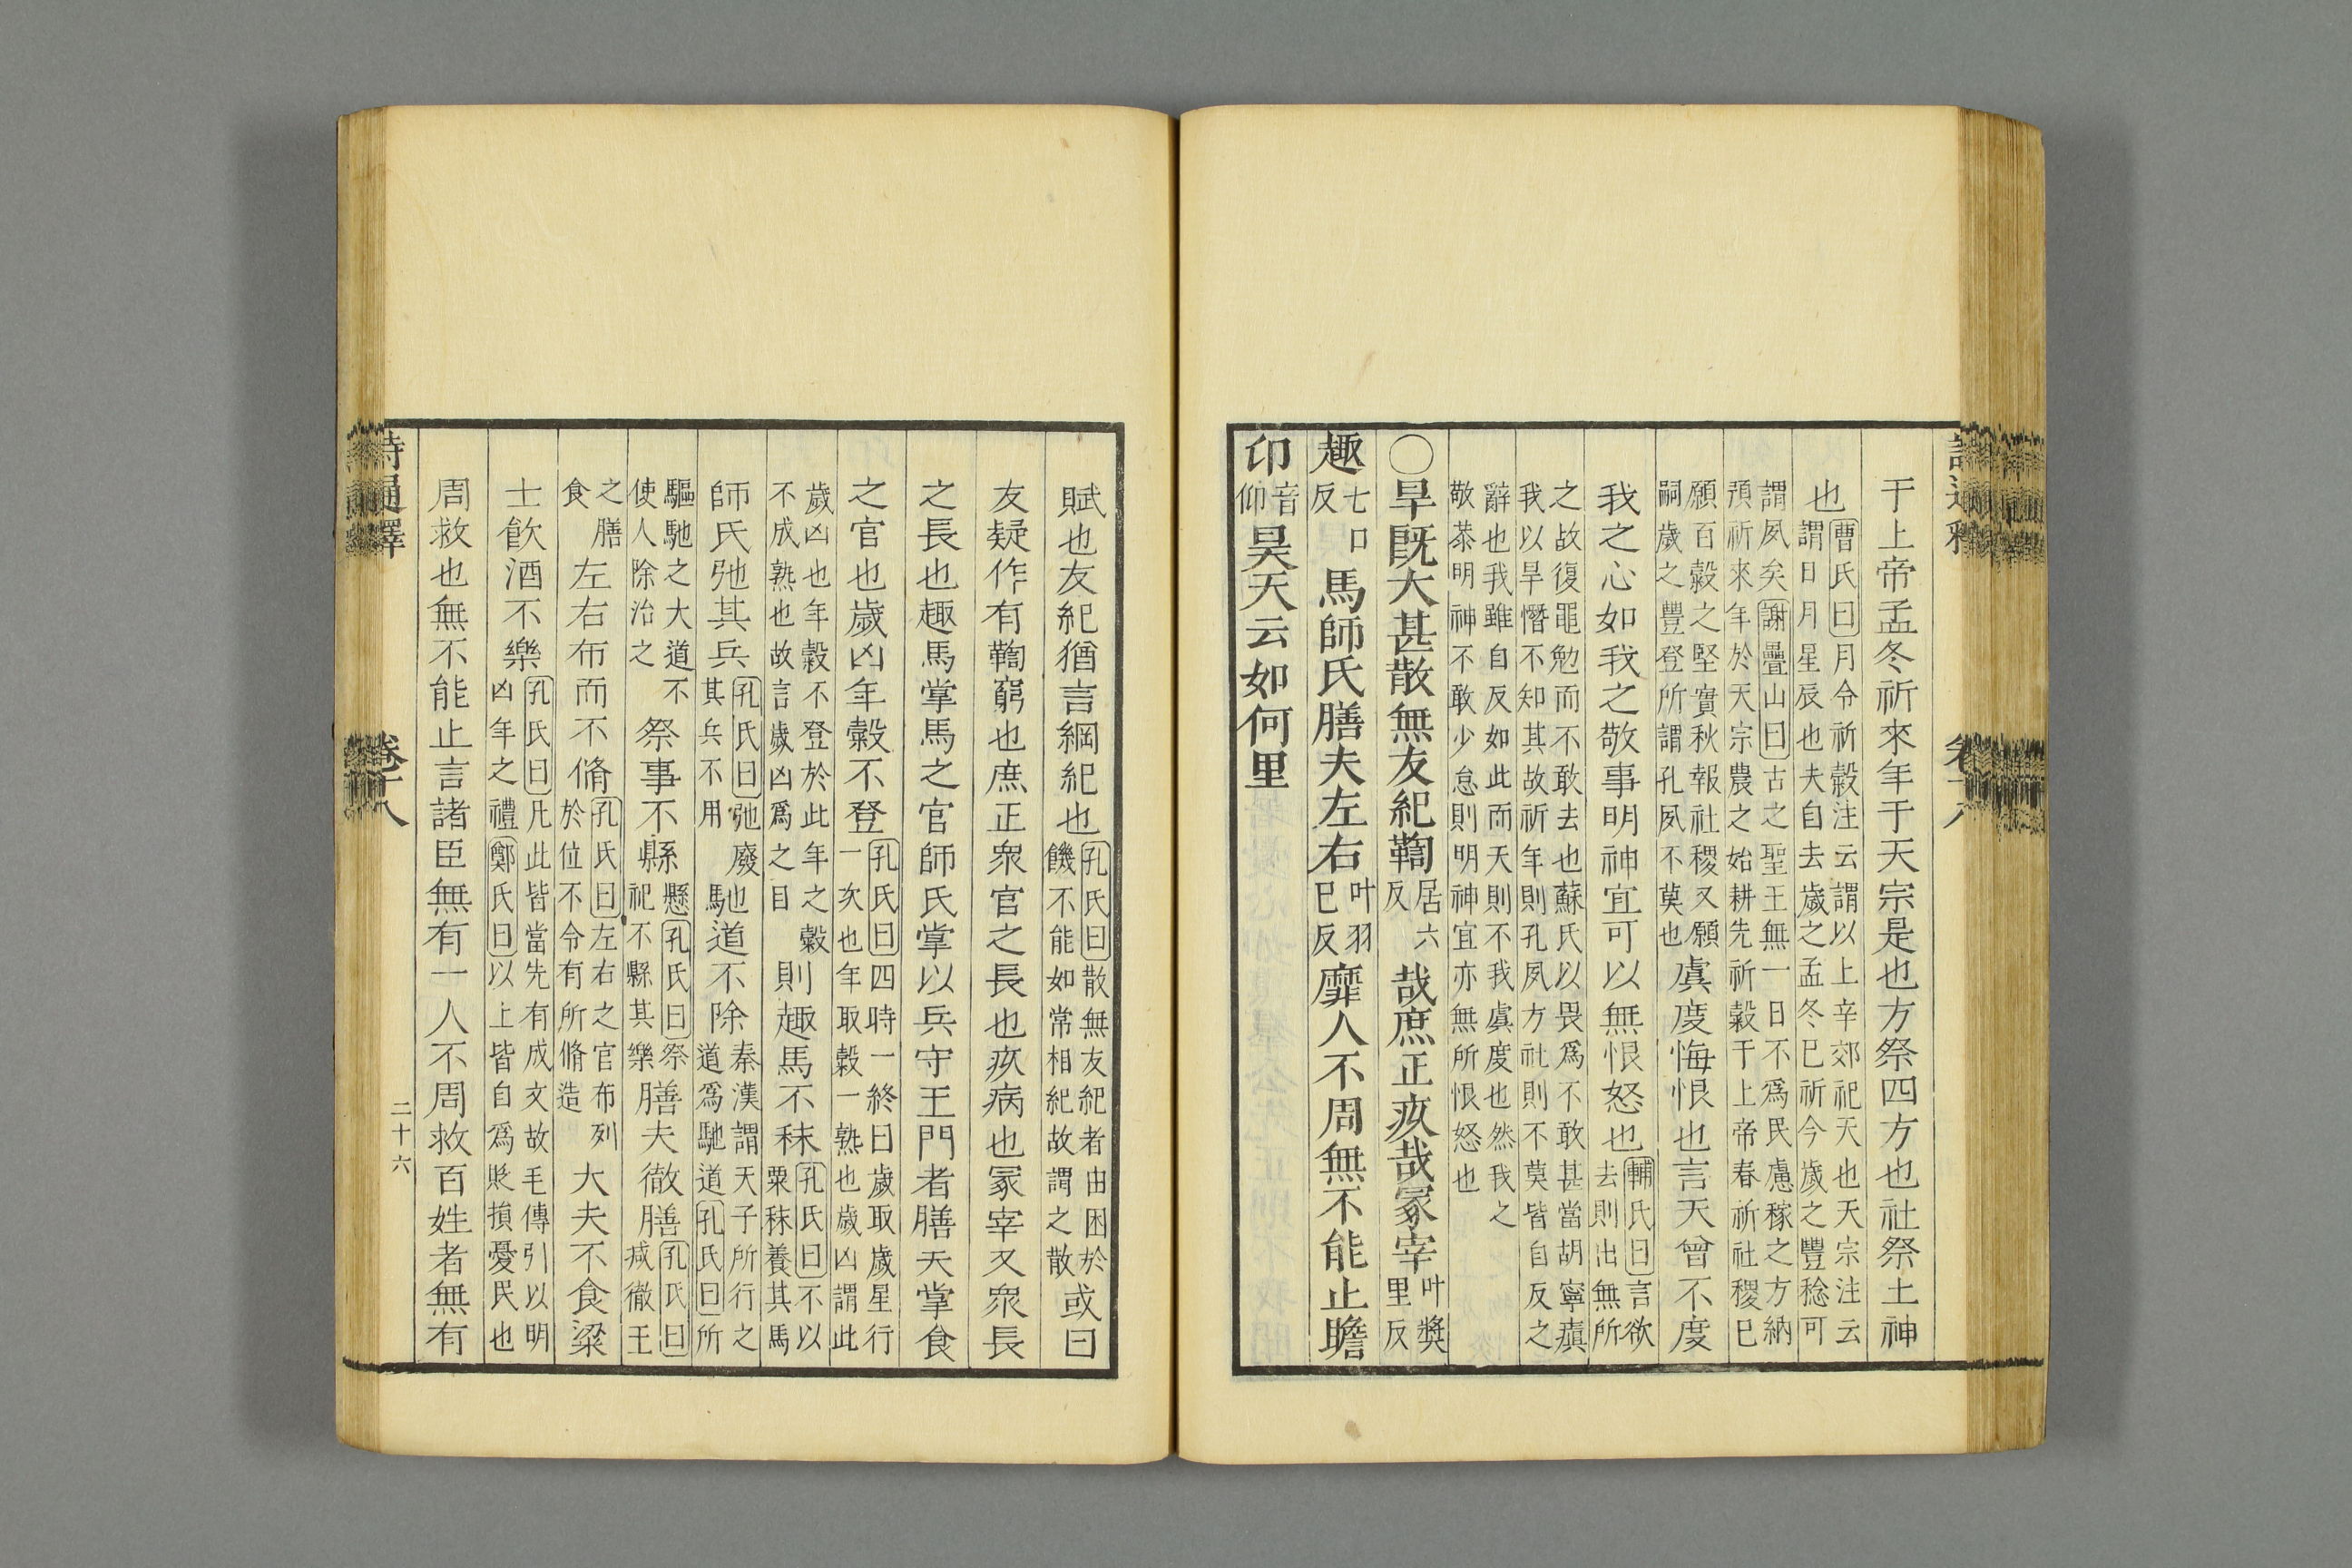 于上帝孟冬祈來年于天宗是也方祭四方也社祭土神
也曹氏曰月令祈穀注云謂以上辛郊祀天也天宗注云
謂日月星辰也夫自去歲之孟冬巳祈今歲之豐稔可
謂夙矣謝疊山曰古之聖王無一日不爲民慮稼之方納
預祈來年於天宗農之始耕先祈穀于上帝春祈社稷巳
願百穀之堅實秋報社稷又願
嗣歲之豐登所謂孔夙不莫也虞度悔恨也言天曾不度
我之心如我之敬事明神宜可以無恨怒也輔氏曰言欲
去則出無所
之故復黽勉而不敢去也蘇氏以畏爲不敢甚當胡寧瘨
我以旱憯不知其故祈年則孔夙方社則不莫皆自反之
辭也我雖自反如此而天則不我虞度也然我之
敬恭明神不敢少怠則明神宜亦無所恨怒也
○旱旣大甚散無友紀鞫居六
反哉庶正疚哉冢宰叶奬
里反
趣七口
反馬師氏膳夫左右叶羽
巳反靡人不周無不能止瞻
卬音
仰昊天云如何里
賦也友紀猶言綱紀也孔氏曰散無友紀者由困於
饑不能如常相紀故謂之散或曰
友疑作有鞫窮也庶正衆官之長也疚病也冢宰又衆長
之長也趣馬掌馬之官師氏掌以兵守王門者膳夫掌食
之官也歲凶年穀不登孔氏曰四時一終曰歲取歲星行
一次也年取穀一熟也歲凶謂此
歲凶也年穀不登於此年之穀
不成熟也故言歲凶爲之目則趣馬不秣孔氏曰不以
粟秣養其馬
師氏弛其兵孔氏曰弛廢
其兵不用馳道不除秦漢謂天子所行之
道爲馳道孔氏曰所
驅馳之大道不
使人除治之祭事不縣縣懸孔氏曰祭
祀不縣其樂膳夫徹膳孔氏曰
減徹王
之膳
食左右布而不脩孔氏曰左右之官布列
於位不令有所脩造大夫不食粱
士飮酒不樂孔氏曰凡此皆當先有成文故毛傳引以明
凶年之禮鄭氏曰以上皆自爲貶損憂民也
周救也無不能止言諸臣無有一人不周救百姓者無有
二十六